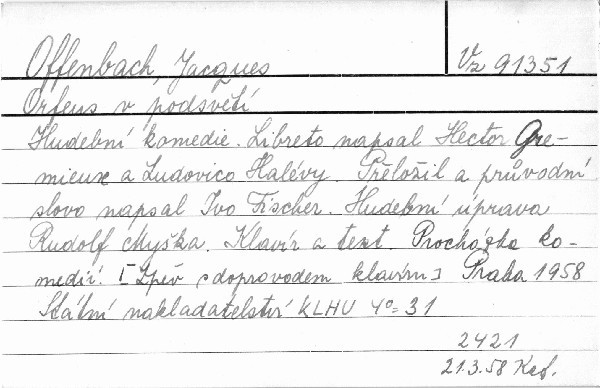 Offenbach, Jacques Vz 91351
Orfeus v podsvětí
Hudební komedie. Libreto napsal Hector Gre-
mieux a Ludovico Halévy. Přeložil a průvodní
slovo napsal Ivo Fischer. Hudební úprava
Rudolf Myška. Klavír a text. Procházka ko-
medií. [Zpěv s doprovodem klavíru] Praha 1958
Státní nakladatelství KLHU 4°= 31
2421
21.3.58 Kef.